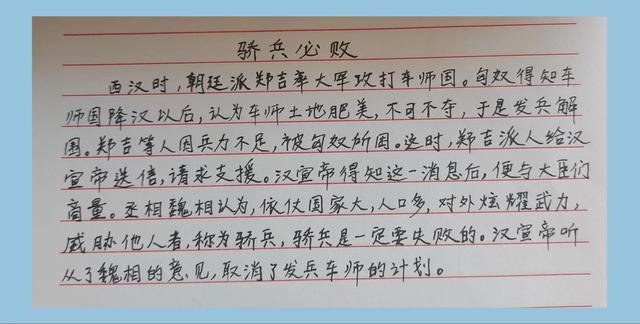 骄兵必败
西汉时,朝廷派郑吉率大军攻打车师国。匈奴得知车
师国降汉以后,认为车师土地肥美,不可不夺,于是发兵解
围。郑吉等人因兵力不足,被匈奴所困。这时,郑吉派人给汉
宣帝送信,请求支援。汉宣帝得知这一消息后,便与大臣们
商量。丞相魏相认为,依仗国家大,人口多,对外炫耀武力,
威胁他人者,称为骄兵,骄兵是一定要失败的。汉宣帝听
从了魏相的意见,取消了发兵车师的计划。